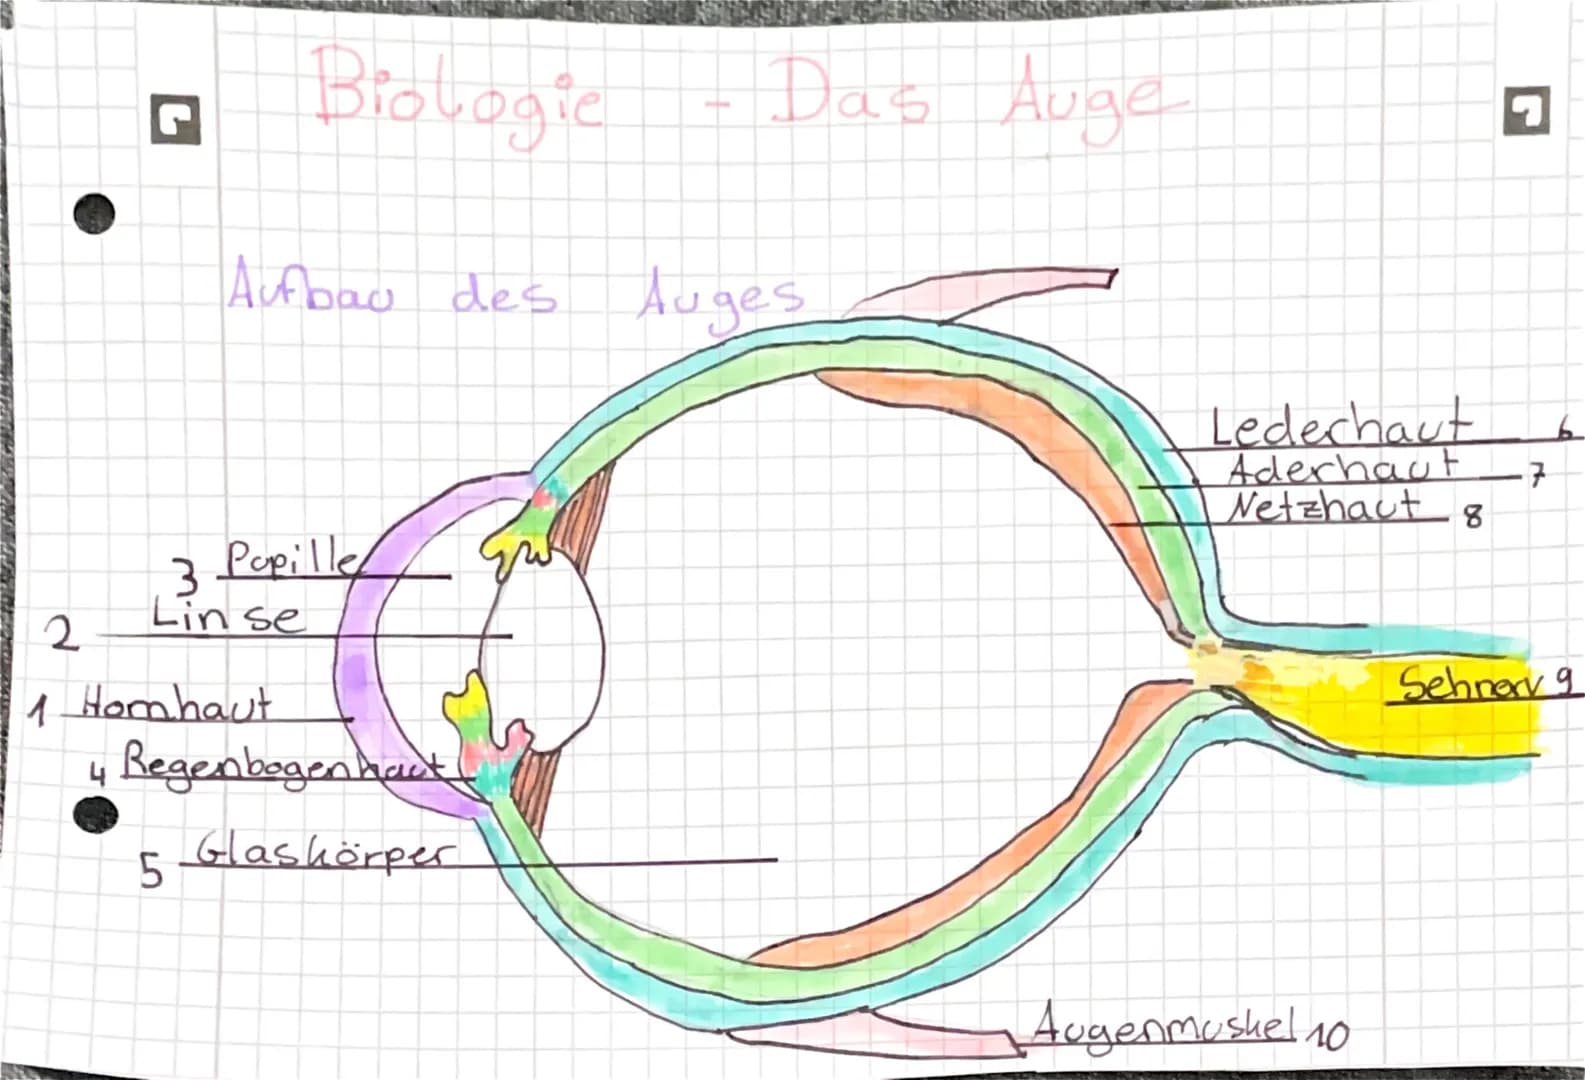 Biologie - Das Auge
Aufbau des Auges
Lederhaut 6
Aderhaut 7
Netzhaut 8
3 Popille
2 Linse
Sehnerv 9
1 Hornhaut
4 Regenbogenhaut
5 Glaskörper
Augenmuskel 10